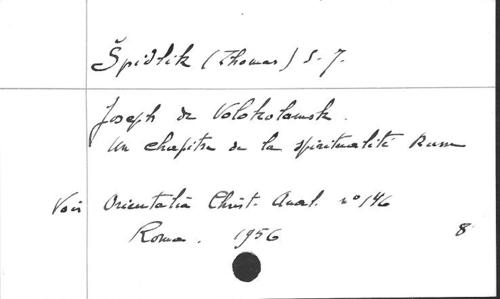 Špidlik (Thomas) S. J.
Joseph de Volokolamsk.
Un chapitre de la spiritualité Russe
Voir Orientalia Christ. Anal. nº 146
Roma. 1956 8